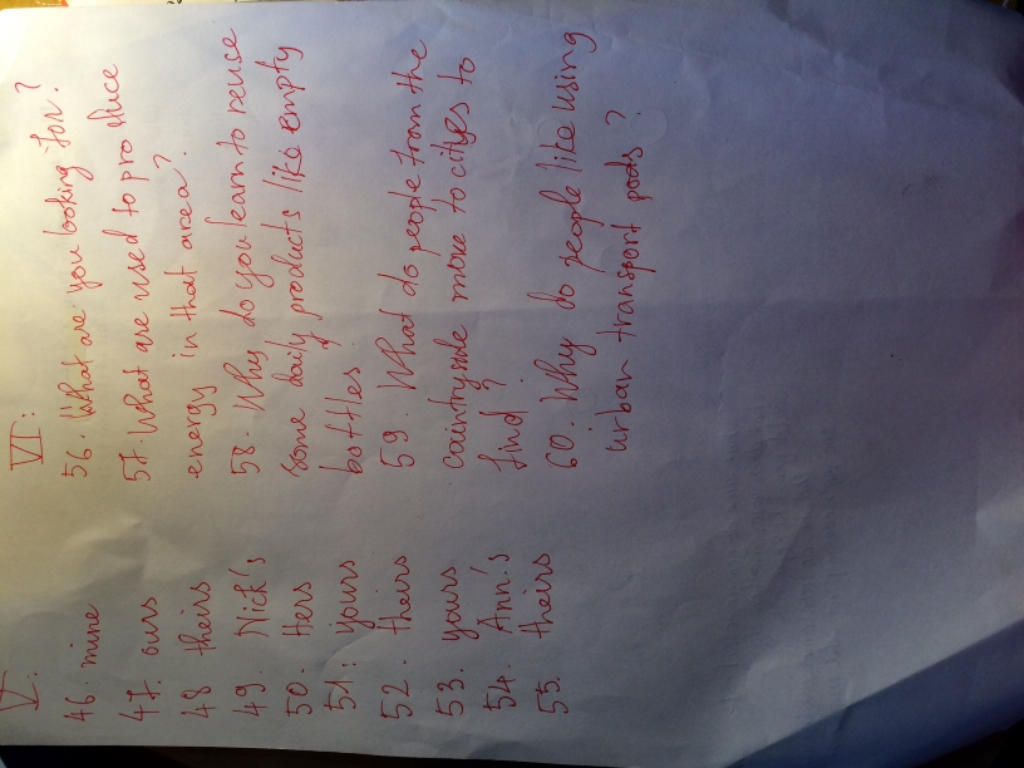 V:
46. mine
47. ours
48 theirs
49. Nick's
50. Hers
51: yours
52. theirs
53. yours
54. Ann's
55. theirs
VI:
56. What are you looking for?
57. What are used to produce
energy in that area?
58. Why do you learn to reuce
some daily products like empty
bottles
59. What do people from the
countryside move to cityes to
find?
60. Why do people like using
urban transport pods?